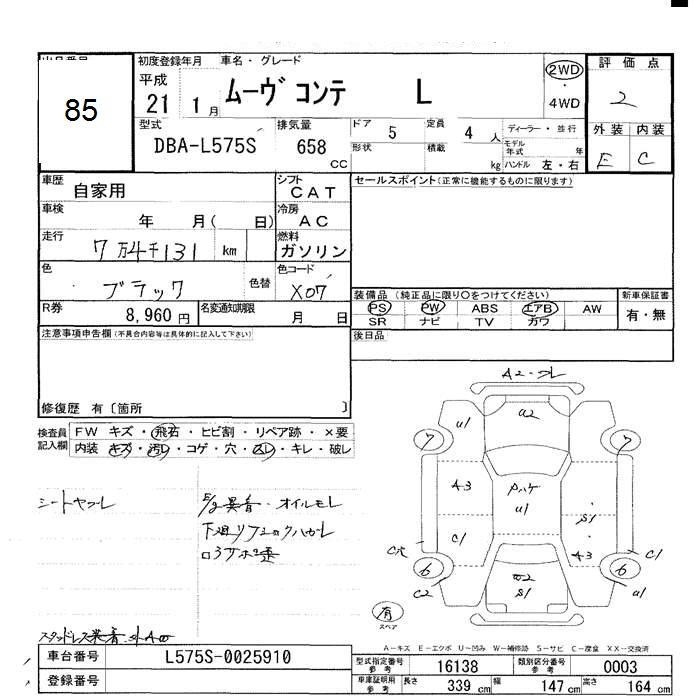 初度登録年月 車名・グレード 評価点
85
平成 21 1月 ムーヴ コンテ L
2WD
・
4WD
2
型式 排気量 ドア 5 定員 4人 ディーラー・並行 外装 内装
DBA-L575S 658 CC 形状 積載 kg モデル年式 年 E C
ハンドル 左・右
車歴 自家用 シフト CAT セールスポイント(正常に機能するものに限ります)
車検 年 月( 日) 冷房 AC
走行 7万4千131 km 燃料 ガソリン
色 ブラック 色替 色コード X07
装備品 (純正品に限り○をつけてください) 新車保証書
R券 8,960円 名変通知期限 月 日
PS PW ABS エアB AW 有・無
SR ナビ TV カワ
注意事項申告欄(不具合内容等は具体的に記入して下さい) 後日品
修復歴 有〔箇所 〕
検査員記入欄 FW キズ・飛石・ヒビ割・リペア跡・×要
内装・キズ・汚レ・コゲ・穴・スレ・キレ・破レ
シートヤブレ
E/g異音・オイルモレ
下廻り
スタッドレス装着
A2
U1 U2
7 7
A3 U1 S1
C1 A3 C1
6 6
C2 S1 U1
有
スペア
A-キズ E-エクボ U-凹み W-補修跡 S-サビ C-腐食 XX-交換済
車台番号 L575S-0025910
登録番号
型式指定番号 参考 16138 類別区分番号 参考 0003
車庫証明用 参考 長さ 339 cm 幅 147 cm 高さ 164 cm